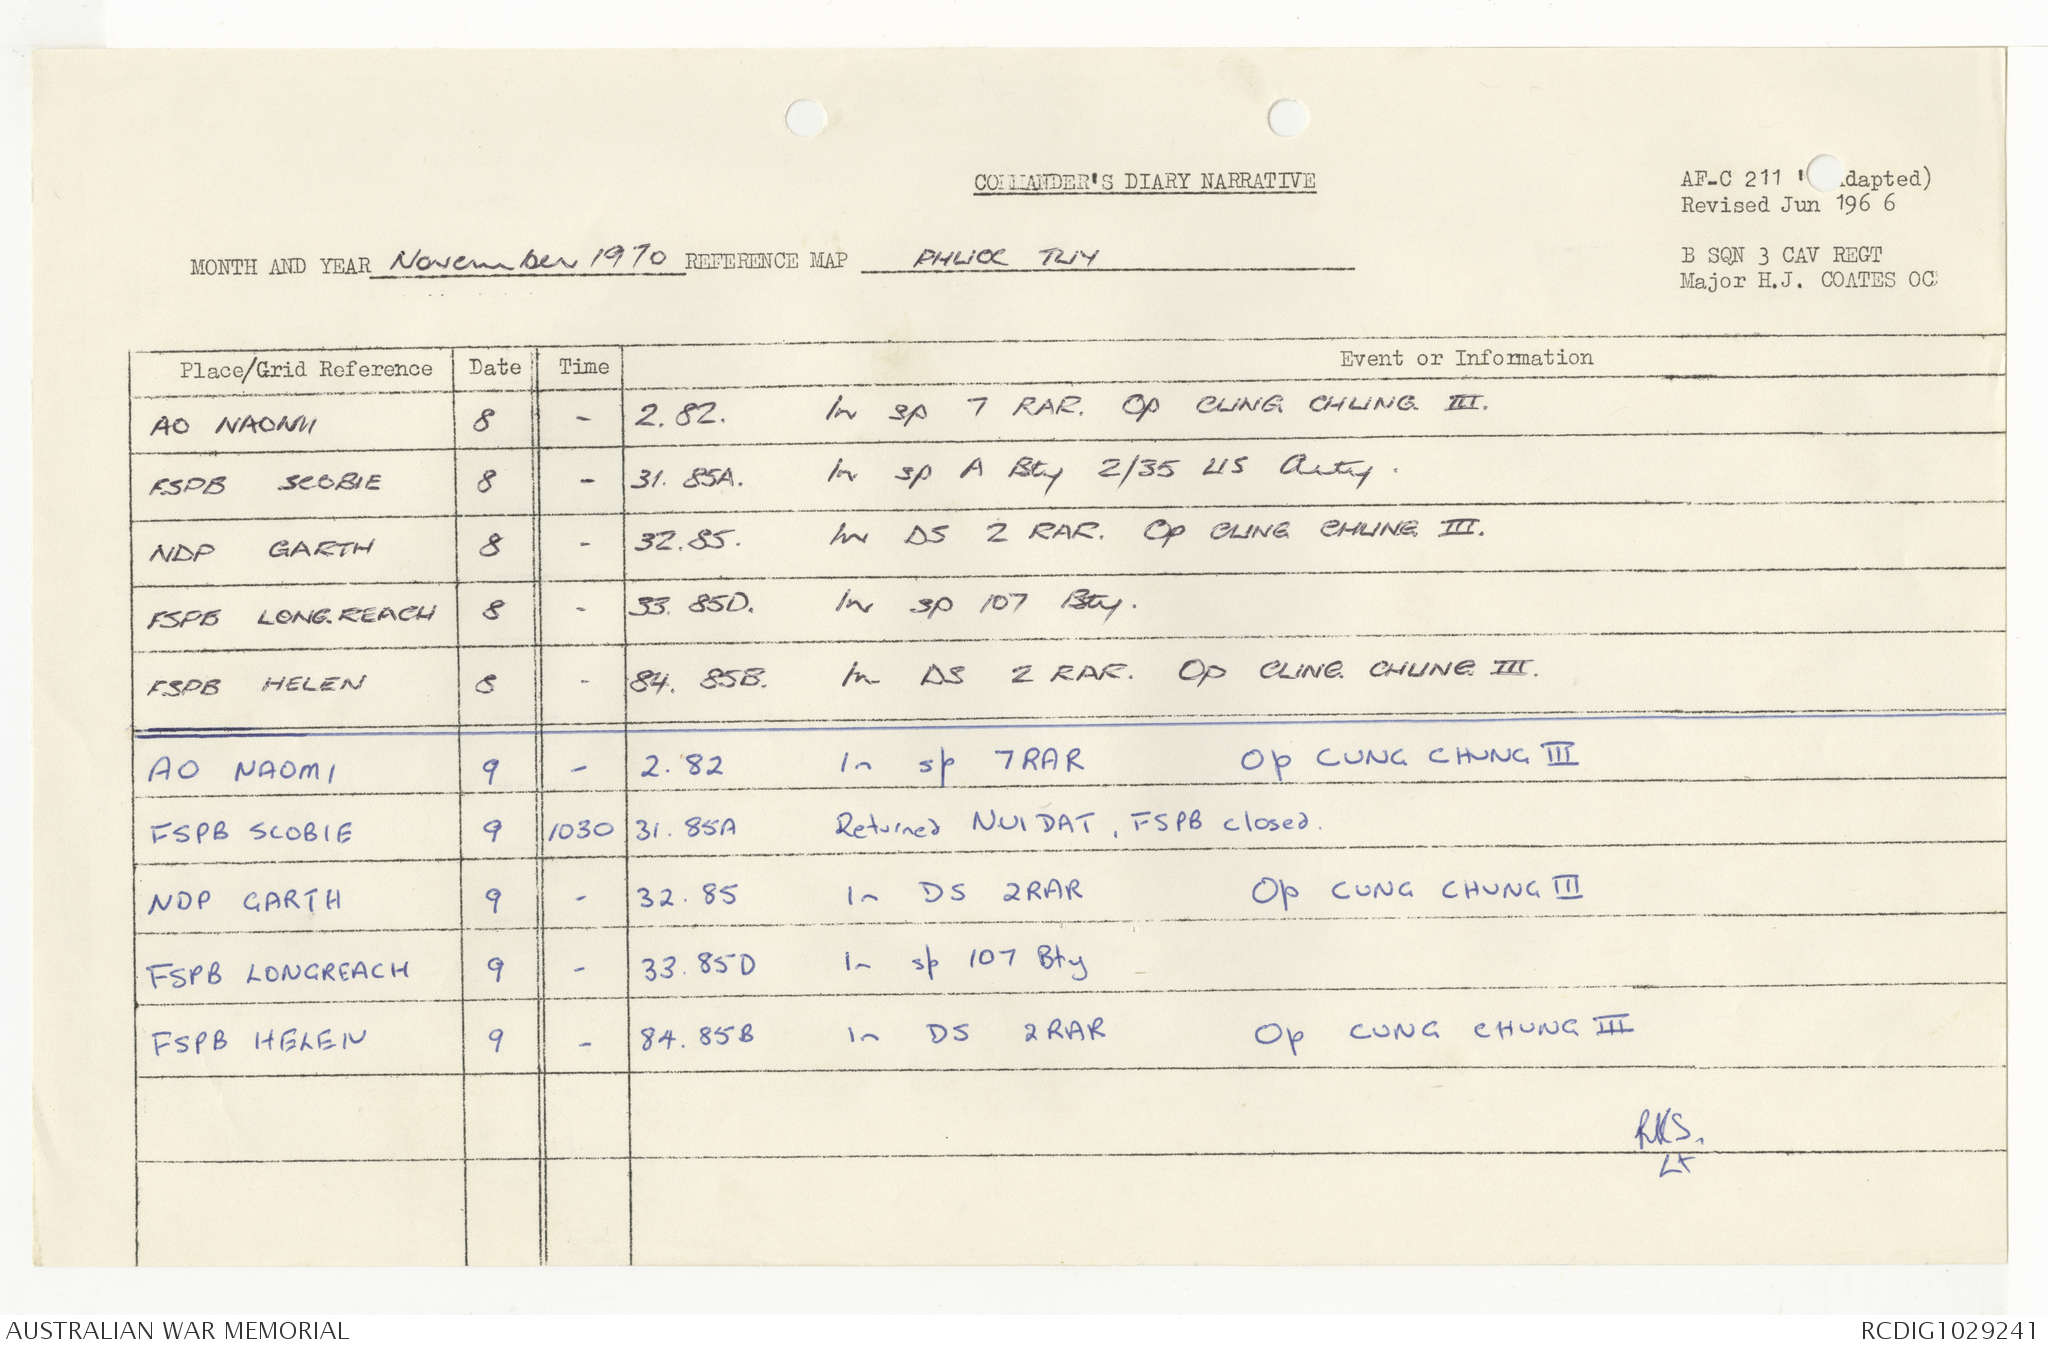 COMMANDER'S DIARY NARRATIVE
AF-C 211 (Adapted)
Revised Jun 1966
B SQN 3 CAV REGT
Major H.J. COATES OC
MONTH AND YEAR November 1970 REFERENCE MAP PHUOC TUY
Place/Grid Reference Date Time Event or Information
AO NAOMI 8 - 2.82. In sp 7 RAR. Op CUNG CHUNG III.
FSPB SCOBIE 8 - 31.85A. In sp A Bty 2/35 US Arty.
NDP GARTH 8 - 32.85. In DS 2 RAR. Op CUNG CHUNG III.
FSPB LONGREACH 8 - 33.85D. In sp 107 Bty.
FSPB HELEN 8 - 84.85B. In DS 2 RAR. Op CUNG CHUNG III.
AO NAOMI 9 - 2.82 In sp 7RAR Op CUNG CHUNG III
FSPB SCOBIE 9 1030 31.85A Returned NUI DAT, FSPB closed.
NDP GARTH 9 - 32.85 In DS 2RAR Op CUNG CHUNG III
FSPB LONGREACH 9 - 33.85D In sp 107 Bty
FSPB HELEN 9 - 84.85B In DS 2RAR Op CUNG CHUNG III
RKS.
Lt
AUSTRALIAN WAR MEMORIAL
RCDIG1029241